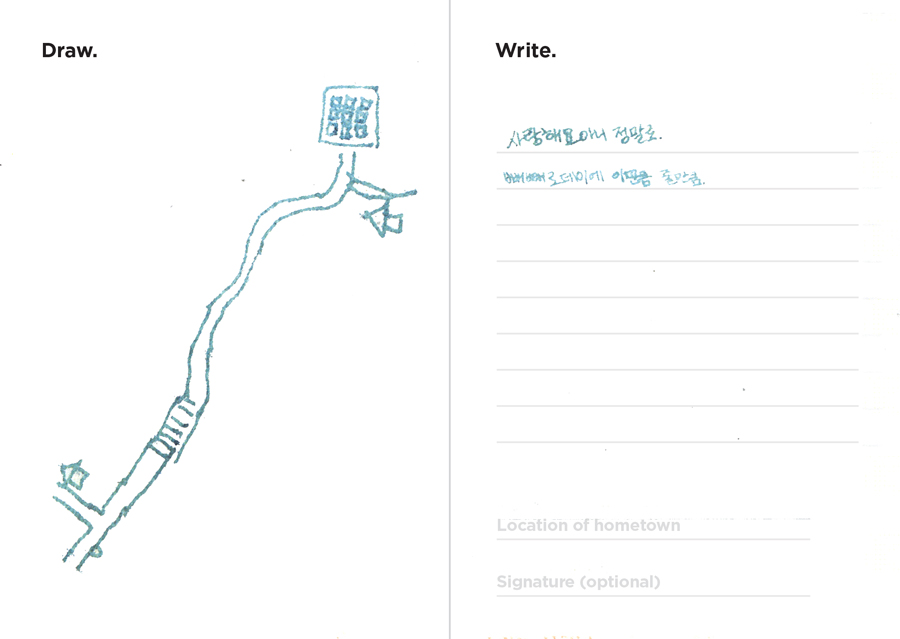 Draw.
Write.
사랑해요 아니 정말로.
빼빼로데이에 이만큼 줄만큼.
Location of hometown
Signature (optional)